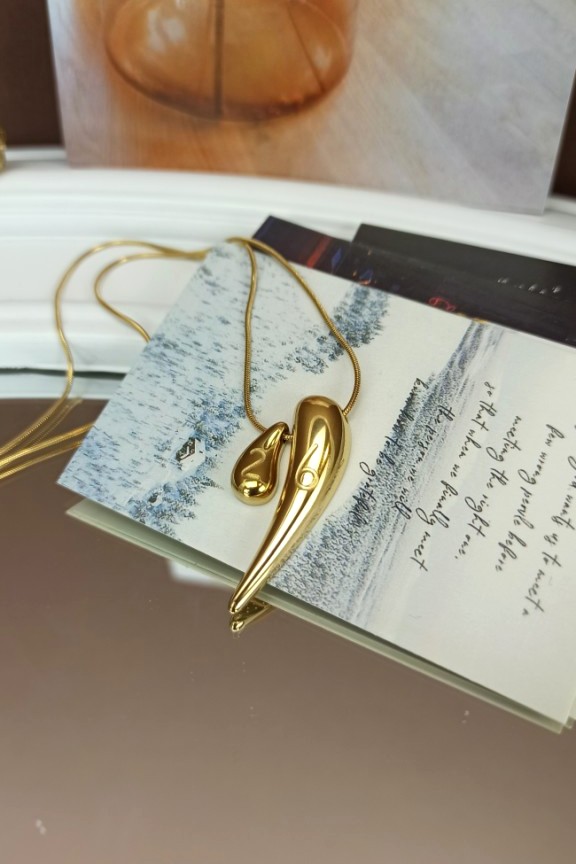 want us to meet a
few wrong people before
meeting the right one,
so that when we finally meet
the person, we will
how to be grateful